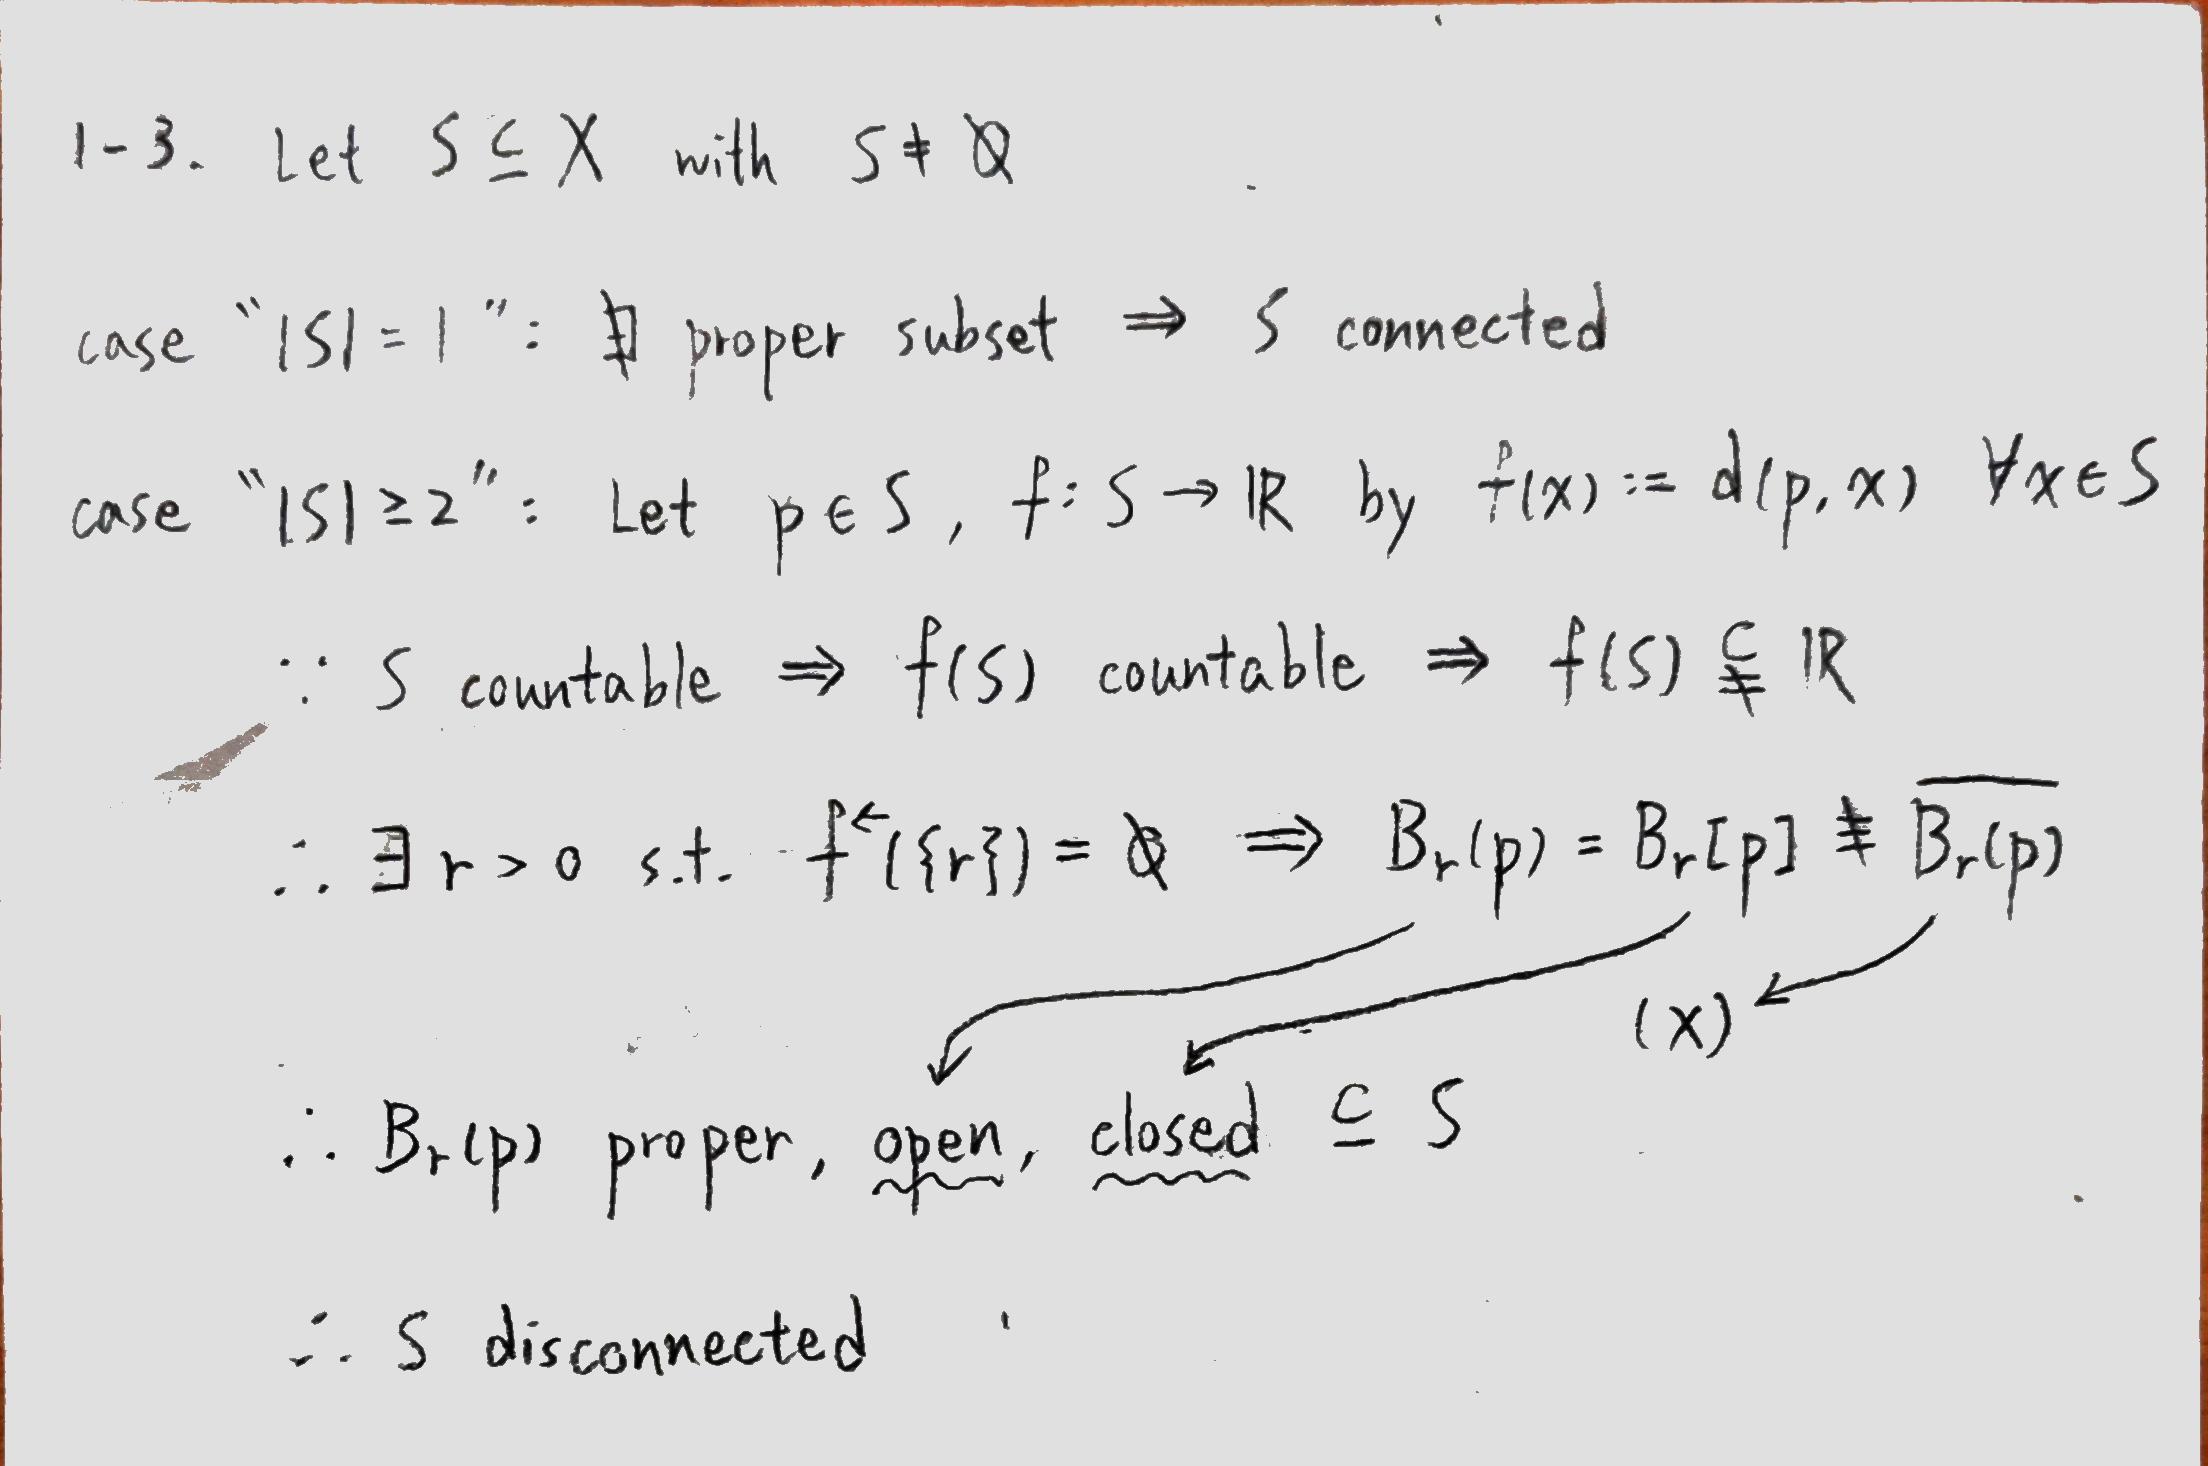 1-3. Let S ⊆ X with S ≠ ∅
case "|S| = 1": ∄ proper subset ⇒ S connected
case "|S| ≥ 2": Let p ∈ S, f: S → ℝ by f(x) := d(p, x) ∀x ∈ S
∵ S countable ⇒ f(S) countable ⇒ f(S) ⊊ ℝ
∴ ∃ r > 0 s.t. f^←({r}) = ∅ ⇒ B_r(p) = B_r[p] ≢ \overline{B_r(p)}
(X)
∴ B_r(p) proper, open, closed ⊆ S
∴ S disconnected